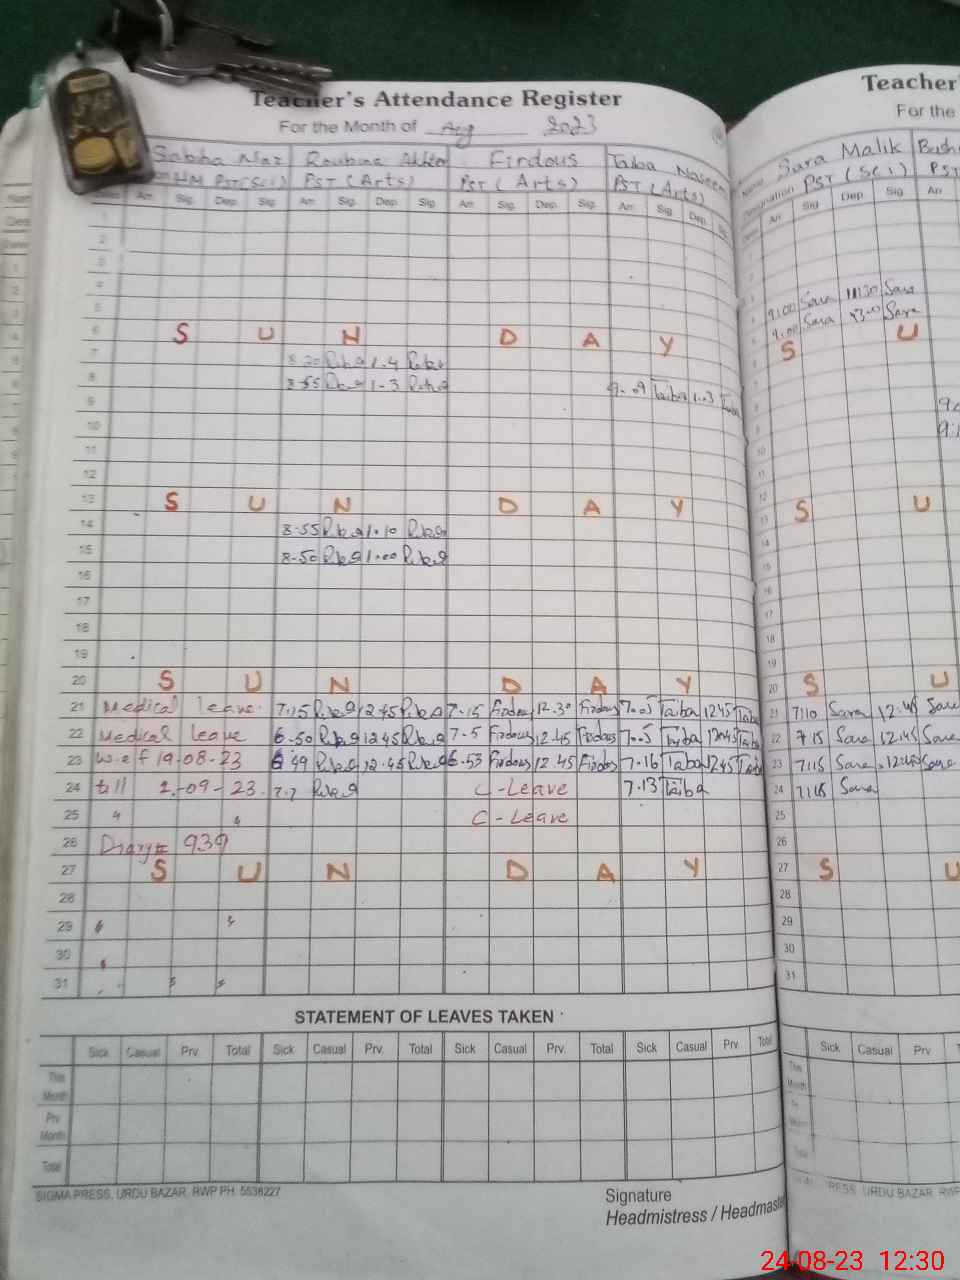 Teacher's Attendance Register
For the Month of Aug 2023
Sabha Naz Roubina Akhter Firdous Taiba Naseem
HM PST(Sci) PST (Arts) PST (Arts) PST (Arts)
Arr. Sig. Dep. Sig. Arr. Sig. Dep. Sig. Arr. Sig. Dep. Sig. Arr. Sig. Dep.
1
2
3
4
5
6 S U N D A Y
7 8-20 1-4
8 8-55 1-3 9-09 Taiba 1-3 Taiba
9
10
11
12
13 S U N D A Y
14 8-55 1.10
15 8-50 1.00
16
17
18
19
20 S U N D A Y
21 Medical leave. 7.15 12.45 7-15 Firdous 12.30 Firdous 7.05 Taiba 1245 Taiba
22 Medical leave 6.50 12.45 7.5 Firdous 12.45 Firdous 7.05 Taiba 12.45 Taiba
23 w.e.f 19-08-23 6.49 12.45 6.53 Firdous 12.45 Firdos 7-16 Taiba 1245 Taiba
24 till 2-09-23. 7.7 C-Leave 7.13 Taiba
25 " " C-Leave
26 Diary# 939
27 S U N D A Y
28
29
30
31
STATEMENT OF LEAVES TAKEN
Sick Casual Prv. Total Sick Casual Prv. Total Sick Casual Prv. Total Sick Casual Prv. Total
This Month
Prv Month
Total
SIGMA PRESS, URDU BAZAR. RWP PH: 5538227
Signature
Headmistress / Headmaster
Teacher'
For the
Name Sara Malik
Designation PST (Sci) PST
Arr. Sig. Dep. Sig. Arr.
9:00 Sara 11:30 Sara
9:00 Sara Sara
S U
9
10
11
12
13 S U
14
15
16
17
18
19
20 S U
21 7:10 Sara 12:45 Sara
22 7:15 Sara 12:45 Sara
23 7:15 Sara 12:45 Sara
24 7:15 Sara
25
26
27 S U
28
29
30
31
Sick Casual Prv
This Month
Total
PRESS, URDU BAZAR. RWP
24-08-23 12:30